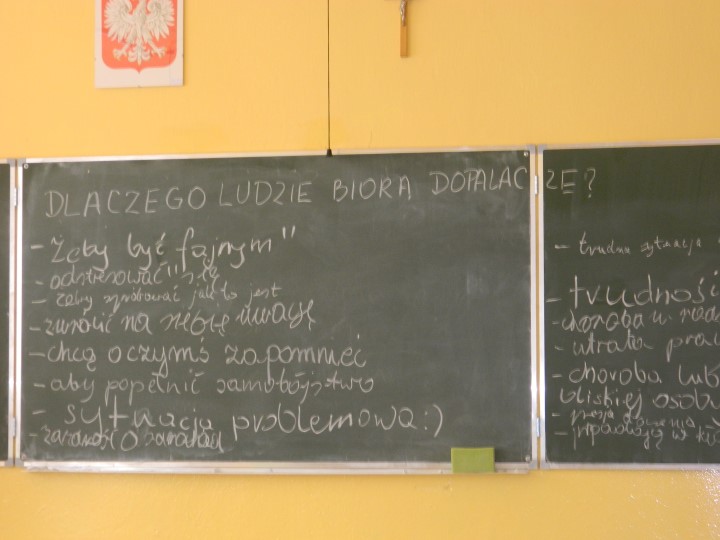 DLACZEGO LUDZIE BIORĄ DOPALACZE?
- żeby być fajnym"
- odstresować" się
- żeby spróbować jak to jest
- zwrócić na siebie uwagę
- chcą o czymś zapomnieć
- aby popełnić samobójstwo
- sytuacja problemowa :)
- trudna sytuacja
- trudnośc
- choroba w rodz
- utrata prac
- choroba lub
bliskiej osob